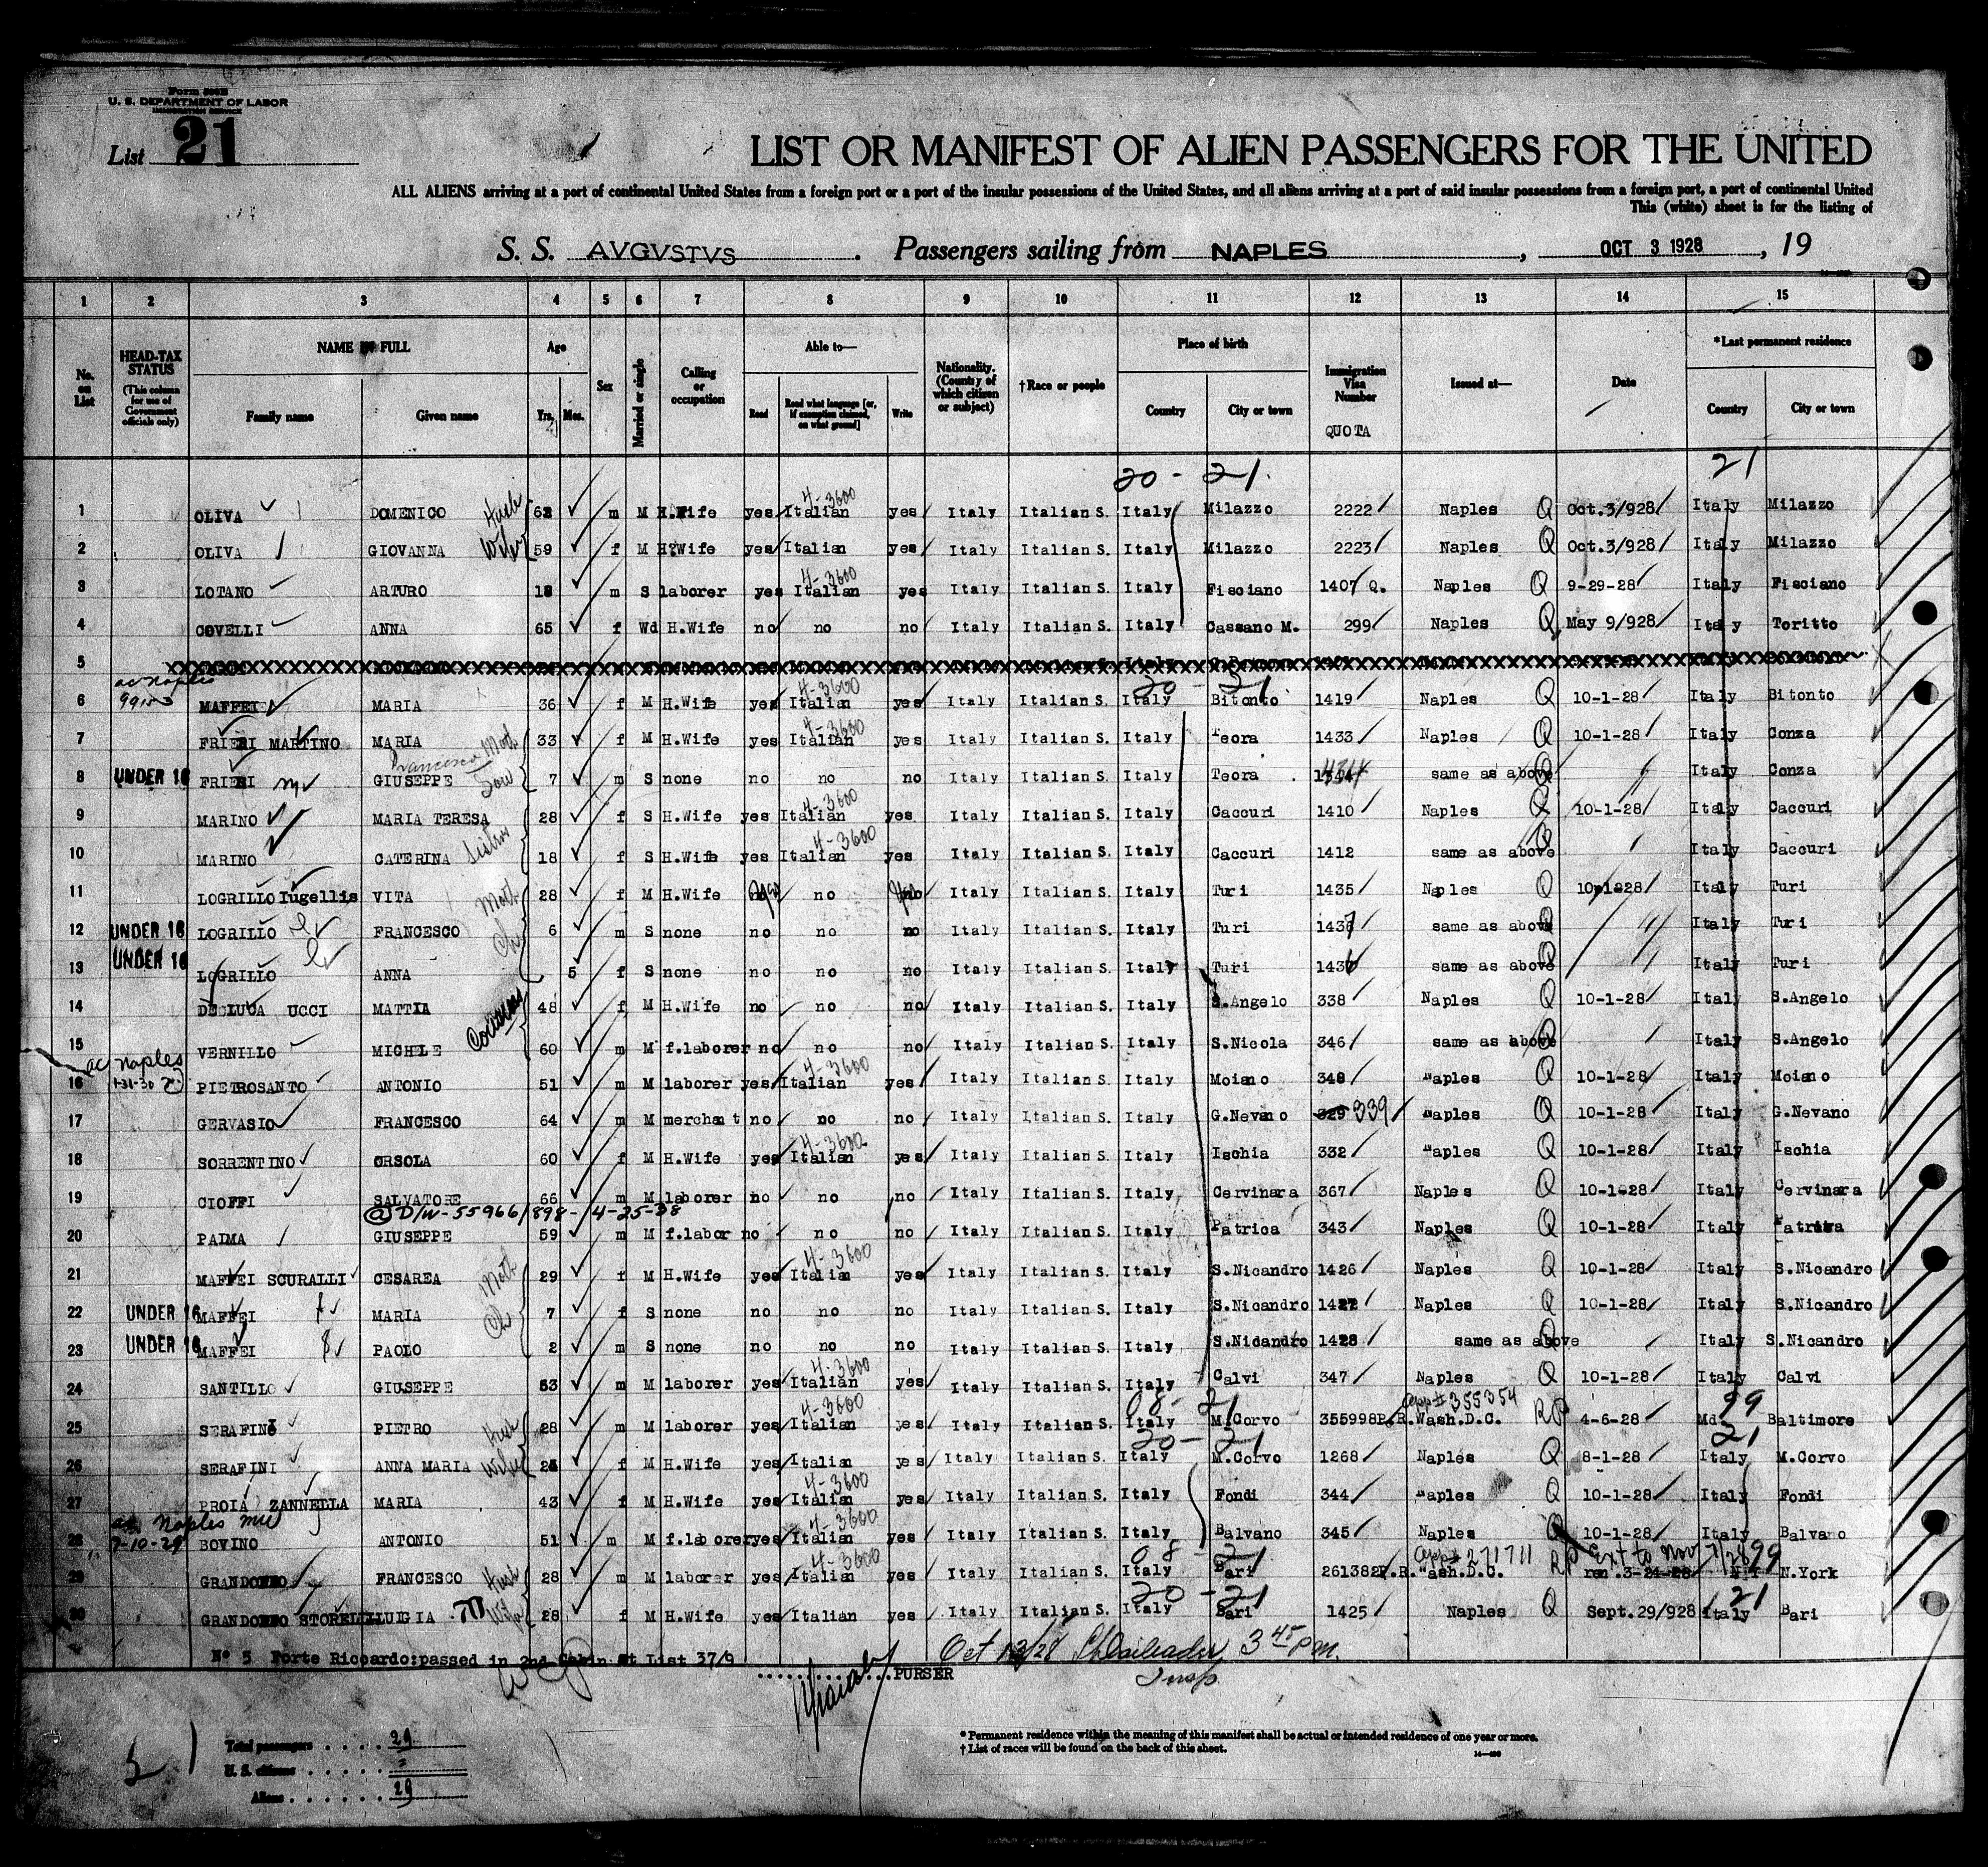 Form
U. S. DEPARTMENT OF LABOR
IMMIGRATION SERVICE
List 21
LIST OR MANIFEST OF ALIEN PASSENGERS FOR THE UNITED
ALL ALIENS arriving at a port of continental United States from a foreign port or a port of the insular possessions of the United States, and all aliens arriving at a port of said insular possessions from a foreign port, a port of continental United
This (white) sheet is for the listing of
S. S. AVGVSTVS. Passengers sailing from NAPLES, OCT 3 1928, 19
1 2 3 4 5 6 7 8 9 10 11 12 13 14 15
No. on List
HEAD-TAX STATUS (This column for use of Government officials only)
NAME IN FULL Family name Given name
Age Yrs. Mos.
Sex
Married or single
Calling or occupation
Able to— Read Read what language [or, if exemption claimed, on what ground] Write
Nationality. (Country of which citizen or subject)
†Race or people
Place of birth Country City or town
Immigration Visa Number QUOTA
Issued at—
Date
*Last permanent residence Country City or town
20 - 21. 21
1 OLIVA DOMENICO Husb 62 m M H.Wife yes Italian 4-3600 yes Italy Italian S. Italy Milazzo 2222 Naples Q Oct.3/928 Italy Milazzo
2 OLIVA GIOVANNA Wife 59 f M H.Wife yes Italian yes Italy Italian S. Italy Milazzo 2223 Naples Q Oct.3/928 Italy Milazzo
3 LOTANO ARTURO 18 m S laborer yes Italian 4-3600 yes Italy Italian S. Italy Fisciano 1407 Q. Naples Q 9-29-28 Italy Fisciano
4 COVELLI ANNA 65 f Wd H.Wife no no no Italy Italian S. Italy Cassano M. 299 Naples Q May 9/928 Italy Toritto
5
ac Naples
20 - 21
6 MAFFEI MARIA 36 f M H.Wife yes Italian 4-3600 yes Italy Italian S. Italy Bitonto 1419 Naples Q 10-1-28 Italy Bitonto
7 FRIERI MARTINO MARIA Moth 33 f M H.Wife yes Italian 4-3600 yes Italy Italian S. Italy Teora 1433 Naples Q 10-1-28 Italy Conza
Francesco
8 UNDER 16 FRIERI m GIUSEPPE Son 7 m S none no no no Italy Italian S. Italy Teora same as above Q Italy Conza
9 MARINO MARIA TERESA 28 f S H.Wife yes Italian 4-3600 yes Italy Italian S. Italy Caccuri 1410 Naples Q 10-1-28 Italy Caccuri
10 MARINO CATERINA Sisters 18 f S H.Wife yes Italian 4-3600 yes Italy Italian S. Italy Caccuri 1412 same as above Q Italy Caccuri
11 LOGRILLO Iugellis VITA Moth 28 f M H.Wife no no Italy Italian S. Italy Turi 1435 Naples Q 10-1-28 Italy Turi
12 UNDER 16 LOGRILLO FRANCESCO Ch 6 m S none no no no Italy Italian S. Italy Turi 1437 same as above Q Italy Turi
13 UNDER 16 LOGRILLO ANNA 5 f S none no no no Italy Italian S. Italy Turi 1436 same as above Q Italy Turi
14 DELUCA UCCI MATTIA 48 f M H.Wife no no no Italy Italian S. Italy S.Angelo 338 Naples Q 10-1-28 Italy S.Angelo
Cousins
15 VERNILLO MICHELE 60 m M f.laborer no no no Italy Italian S. Italy S.Nicola 346 same as above Q Italy S.Angelo
ac Naples
16 1-31-30 PIETROSANTO ANTONIO 51 m M laborer yes Italian 4-3600 yes Italy Italian S. Italy Moiano 348 Naples Q 10-1-28 Italy Moiano
17 GERVASIO FRANCESCO 64 m M merchant no no no Italy Italian S. Italy G.Nevano 329 339 Naples Q 10-1-28 Italy G.Nevano
18 SORRENTINO ORSOLA 60 f M H.Wife yes Italian 4-3600 yes Italy Italian S. Italy Ischia 332 Naples Q 10-1-28 Italy Ischia
19 CIOFFI SALVATORE 66 m M laborer no no no Italy Italian S. Italy Cervinara 367 Naples Q 10-1-28 Italy Cervinara
20 PALMA GIUSEPPE 59 m M f.labor no no no Italy Italian S. Italy Patrica 343 Naples Q 10-1-28 Italy Patrica
21 MAFFEI SCURALLI CESAREA Moth 29 f M H.Wife yes Italian 4-3600 yes Italy Italian S. Italy S.Nicandro 1426 Naples Q 10-1-28 Italy S.Nicandro
22 UNDER 16 MAFFEI MARIA Ch 7 f S none no no no Italy Italian S. Italy S.Nicandro 1427 Naples Q 10-1-28 Italy S.Nicandro
23 UNDER 16 MAFFEI PAOLO 2 m S none no no no Italy Italian S. Italy S.Nidandro 1428 same as above Q Italy S.Nicandro
24 SANTILLO GIUSEPPE 53 m M laborer yes Italian 4-3600 yes Italy Italian S. Italy Calvi 347 Naples Q 10-1-28 Italy Calvi
08 - 21 App# 355354 99
25 SERAFINI PIETRO Husb 28 m M laborer yes Italian 4-3600 yes Italy Italian S. Italy M.Corvo 355998 P.R. Wash.D.C. RP 4-6-28 Md Baltimore
20 - 21 21
26 SERAFINI ANNA MARIA Wife f M H.Wife yes Italian yes Italy Italian S. Italy M.Corvo 1268 Naples Q 8-1-28 Italy M.Corvo
27 PROIA ZANNELLA MARIA 43 f M H.Wife yes Italian 4-3600 yes Italy Italian S. Italy Fondi 344 Naples Q 10-1-28 Italy Fondi
ac Naples
28 7-10-29 BOVINO ANTONIO 51 m M f.laborer yes Italian 4-3600 yes Italy Italian S. Italy Balvano 345 Naples Q 10-1-28 Italy Balvano
08 - 21 App# 271711 Ext to Nov 99
29 FRANCESCO Husb 28 m M laborer yes Italian 4-3600 yes Italy Italian S. Italy Bari 261382 P.R. Wash.D.C. RP ren.3-24-28 N.Y N.York
20 - 21 21
30 STORELLI LUIGIA Wife 28 f M H.Wife yes Italian yes Italy Italian S. Italy Bari 1425 Naples Q Sept.29/928 Italy Bari
N° 5 Forte Riccardo:passed in 2nd Cabin at List 37/9
PURSER
Oct 3 45 pm.
Insp.
Total passengers .... 29
U. S. citizens
Aliens 29
* Permanent residence within the meaning of this manifest shall be actual or intended residence of one year or more.
† List of races will be found on the back of this sheet.